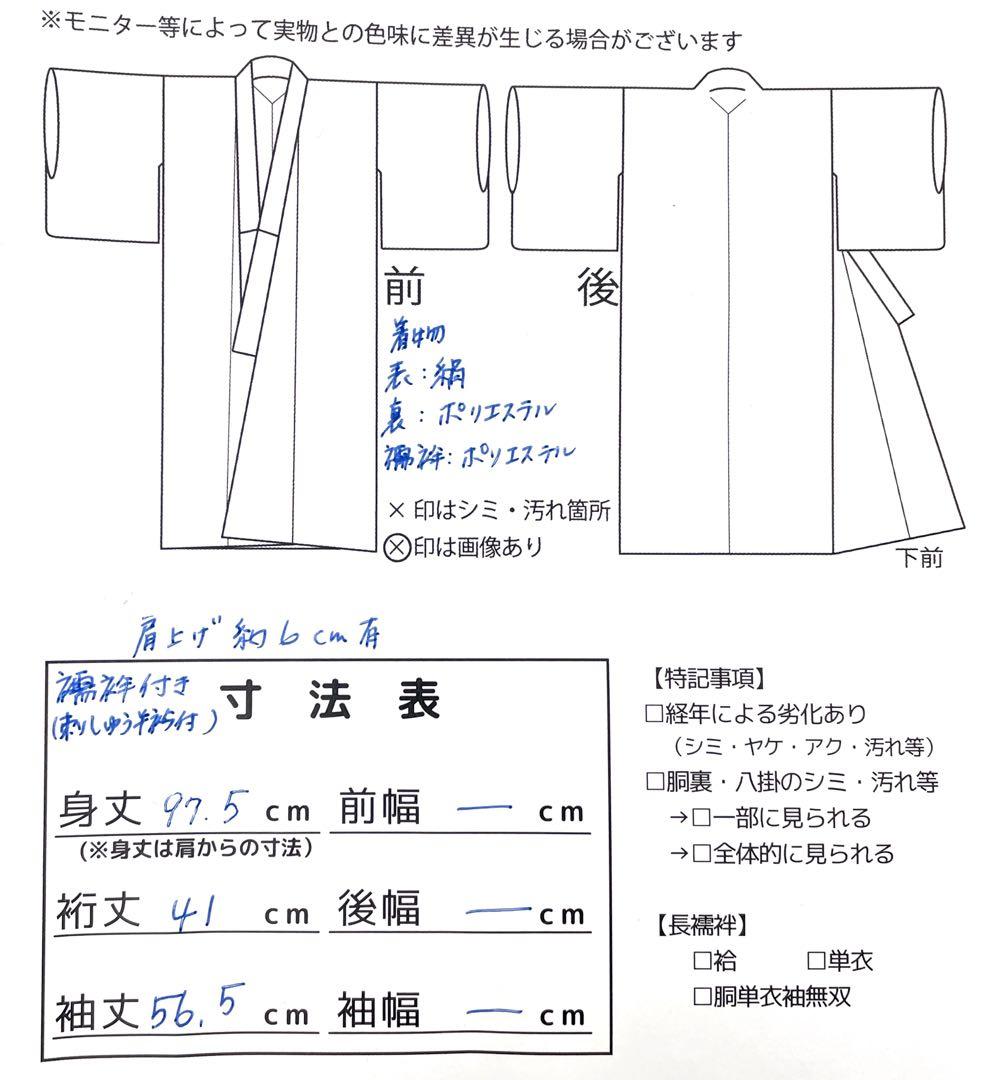 ※モニター等によって実物との色味に差異が生じる場合がございます
前
後
着物
表:絹
裏:ポリエステル
襦袢:ポリエステル
×印はシミ・汚れ箇所
Ⓧ印は画像あり
下前
肩上げ 約6cm有
襦袢付き
(刺しゅう半衿付)
寸法表
身丈 97.5 cm 前幅 ― cm
(※身丈は肩からの寸法)
裄丈 41 cm 後幅 ― cm
袖丈 56.5 cm 袖幅 ― cm
【特記事項】
□経年による劣化あり
(シミ・ヤケ・アク・汚れ等)
□胴裏・八掛のシミ・汚れ等
→□一部に見られる
→□全体的に見られる
【長襦袢】
□袷 □単衣
□胴単衣袖無双